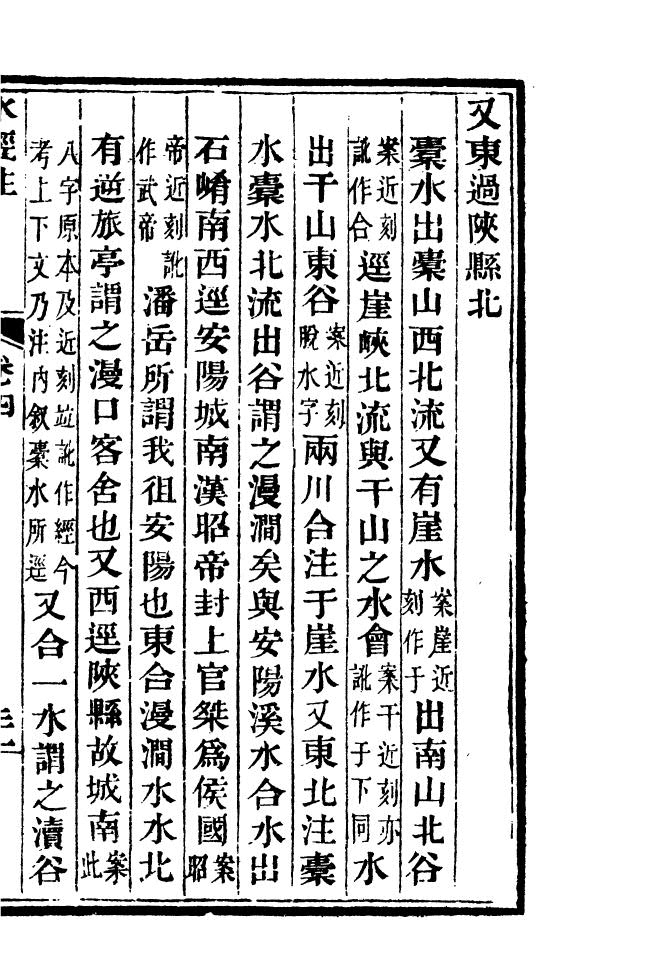 又東過陝縣北
橐水出橐山西北流又有崖水案崖近刻作于出南山北谷
案近刻訛作合逕崖峽北流與干山之水會案干近刻亦訛作于下同水
出干山東谷案近刻脫水字兩川合注于崖水又東北注橐
水橐水北流出谷謂之漫澗矣與安陽溪水合水出
石崤南西逕安陽城南漢昭帝封上官桀爲侯國案昭
帝近刻訛作武帝潘岳所謂我徂安陽也東合漫澗水水北
有逆旅亭謂之漫口客舍也又西逕陝縣故城南案此
八字原本及近刻竝訛作經今考上下文乃注内敘橐水所逕又合一水謂之瀆谷
水經注
卷四